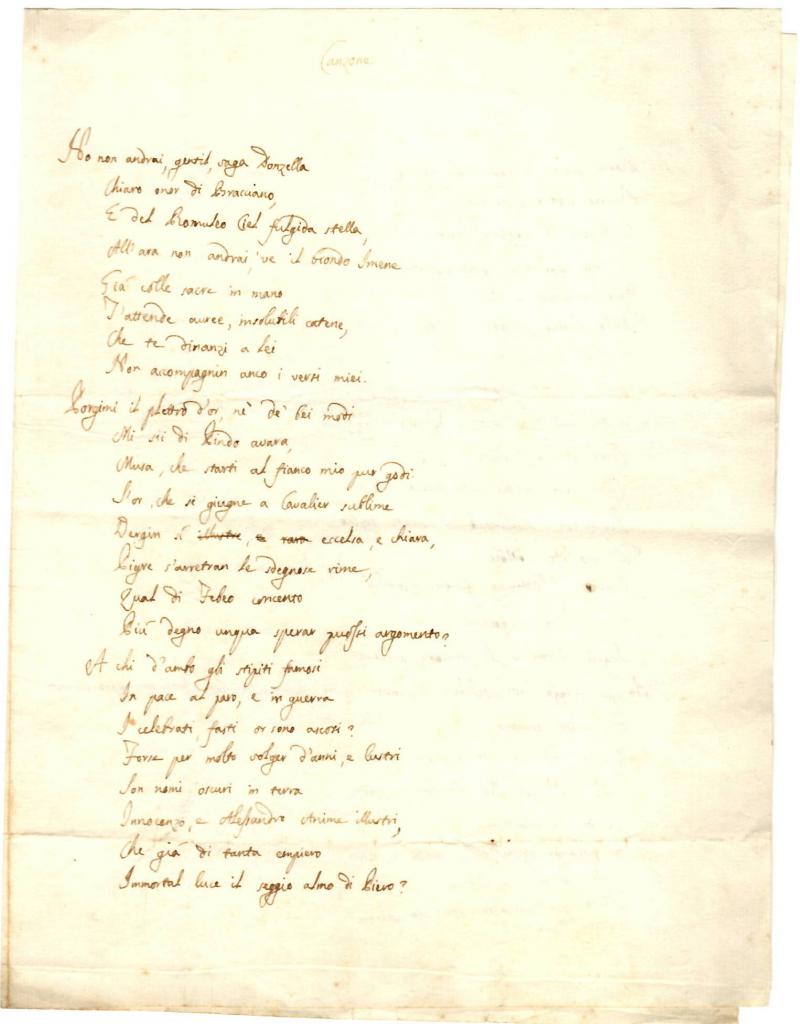 Canzone
No non andrai, gentil, vaga Donzella
Chiaro onor di Bracciano,
E del Romuleo Ciel fulgida stella,
All'ara non andrai, 've il biondo Imene
Già colle sacre in mano
T'attende auree, insolubili catene,
Che te dinanzi a Lei
Non accompagnin anco i versi miei.
Porgimi il plettro d'or, nè de' bei modi
Mi sii di Pindo avara,
Musa, che starti al fianco mio pur godi:
S'or, che si giugne a Cavalier sublime
Vergin sì illustre, e rara eccelsa, e chiara,
Pigre s'arretran le sdegnose rime,
Qual di Febeo concento
Più degno unqua sperar puossi argomento?
A chi d'ambo gli stipiti famosi
In pace al paro, e in guerra
I celebrati fasti or sono ascosi?
Forse per molto volger d'anni, e lustri
Son nomi oscuri in terra
Innocenzo, e Alessandro Anime illustri,
Che già di tanta empiero
Immortal luce il seggio almo di Piero?